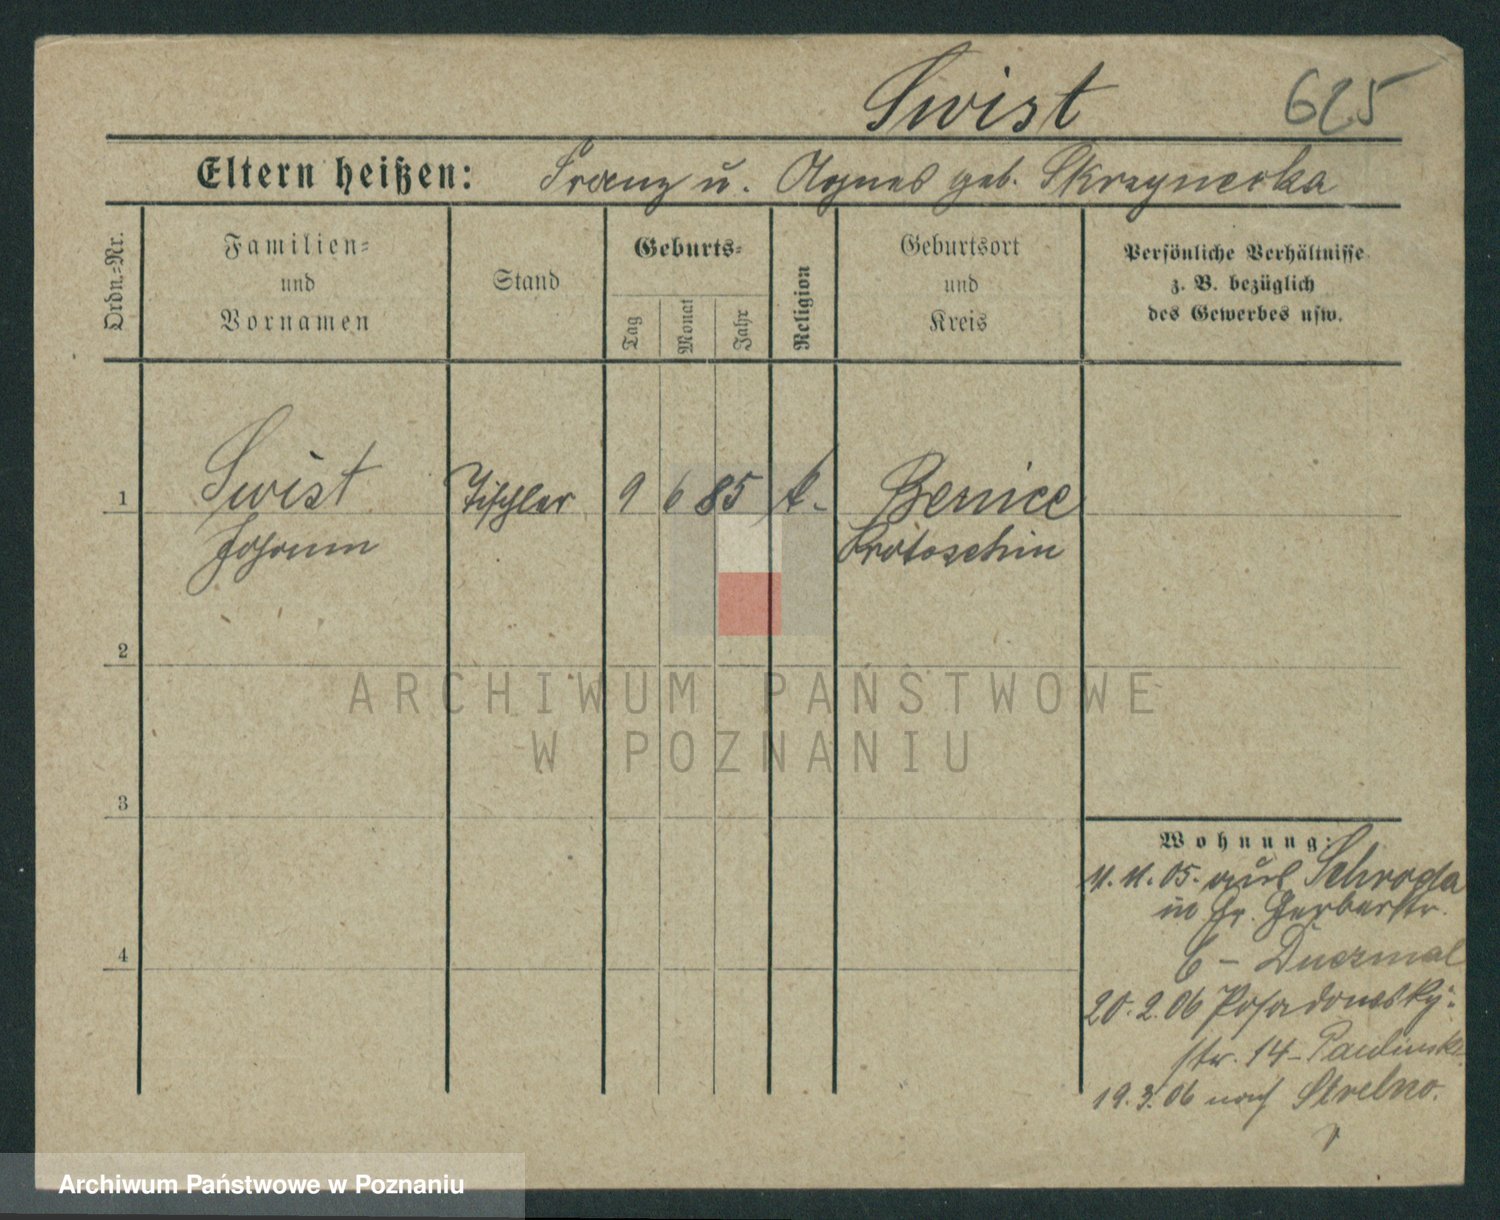 Swist 625
Eltern heißen: Franz u. Agnes geb. Skrzynecka
Ordn.=Nr.
Familien=
und
Vornamen
Stand
Geburts=
Tag
Monat
Jahr
Religion
Geburtsort
und
Kreis
Persönliche Verhältnisse
z. B. bezüglich
des Gewerbes usw.
1 Swist Tischler 9 6 85 k. Bernice
Johann Krotoschin
2
3
4
Wohnung:
11.11.05. aus Schroda
in Gr. Gerberstr.
6 -
20.2.06 Posadowsky=
str. 14 -
19.3.06 nach Strelno.
ARCHIWUM PAŃSTWOWE
W POZNANIU
Archiwum Państwowe w Poznaniu